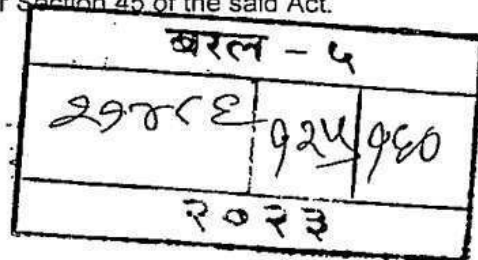 r Section 45 of the said Act.
बरल - ५
२७४८६ १२५ १६०
२०२३